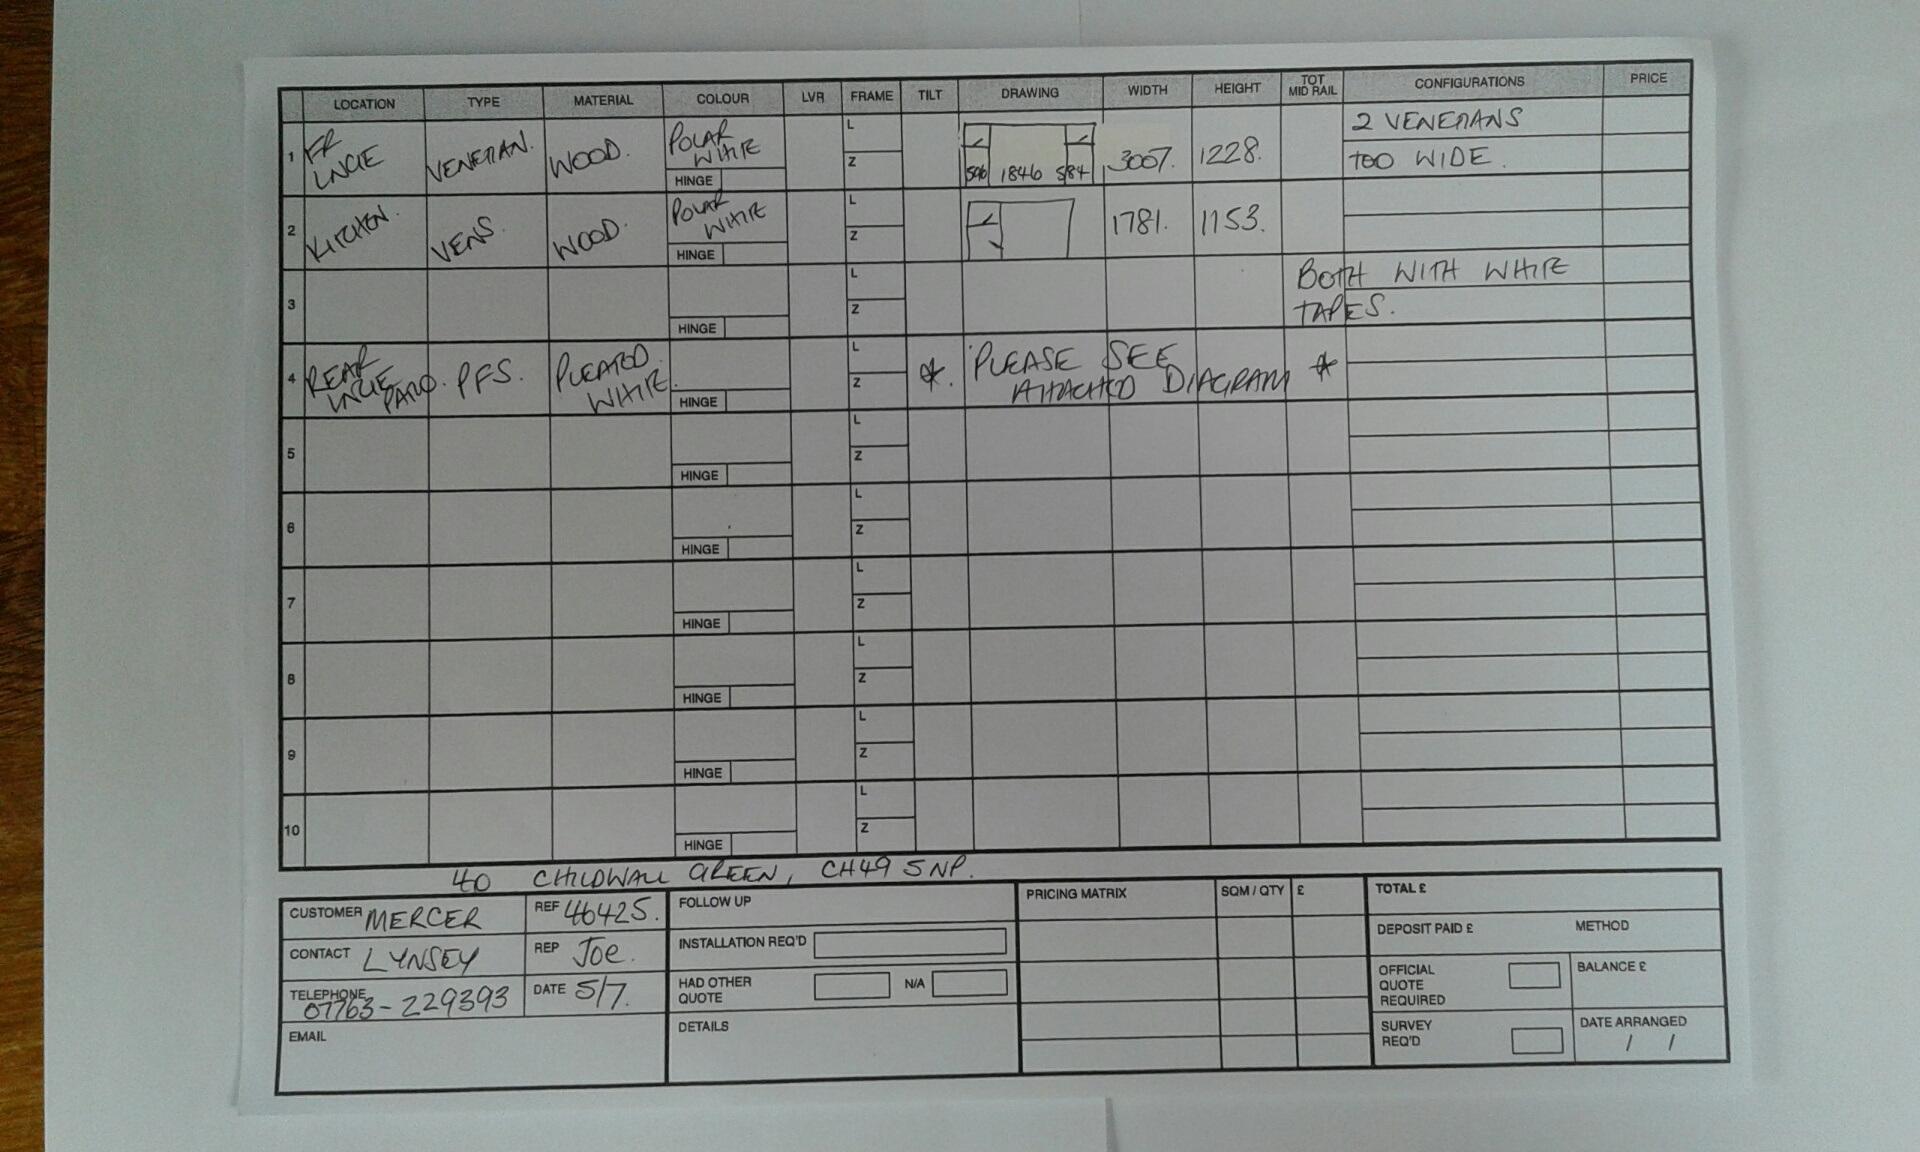 LOCATION TYPE MATERIAL COLOUR LVR FRAME TILT DRAWING WIDTH HEIGHT TOT MID RAIL CONFIGURATIONS PRICE
1 FR LNGE VENETIAN. WOOD. POLAR WHITE HINGE L Z 1846 584 3007. 1228. 2 VENETIANS
TOO WIDE.
2 KITCHEN. VENS. WOOD. POLAR WHITE HINGE L Z 1781. 1153.
3 HINGE L Z BOTH WITH WHITE
TAPES.
4 REAR LNGE PATIO. PFS. PLEATED. WHITE. HINGE L Z *. PLEASE SEE
ATTACHED DIAGRAM *
5 HINGE L Z
6 HINGE L Z
7 HINGE L Z
8 HINGE L Z
9 HINGE L Z
10 HINGE L Z
40 CHILDWALL GREEN, CH49 5NP.
CUSTOMER MERCER REF 46425.
CONTACT LYNSEY REP Joe.
TELEPHONE 07763-229393 DATE 5/7.
EMAIL
FOLLOW UP
INSTALLATION REQ'D
HAD OTHER QUOTE N/A
DETAILS
PRICING MATRIX SQM / QTY £
TOTAL £
DEPOSIT PAID £ METHOD
OFFICIAL QUOTE REQUIRED BALANCE £
SURVEY REQ'D DATE ARRANGED
/ /